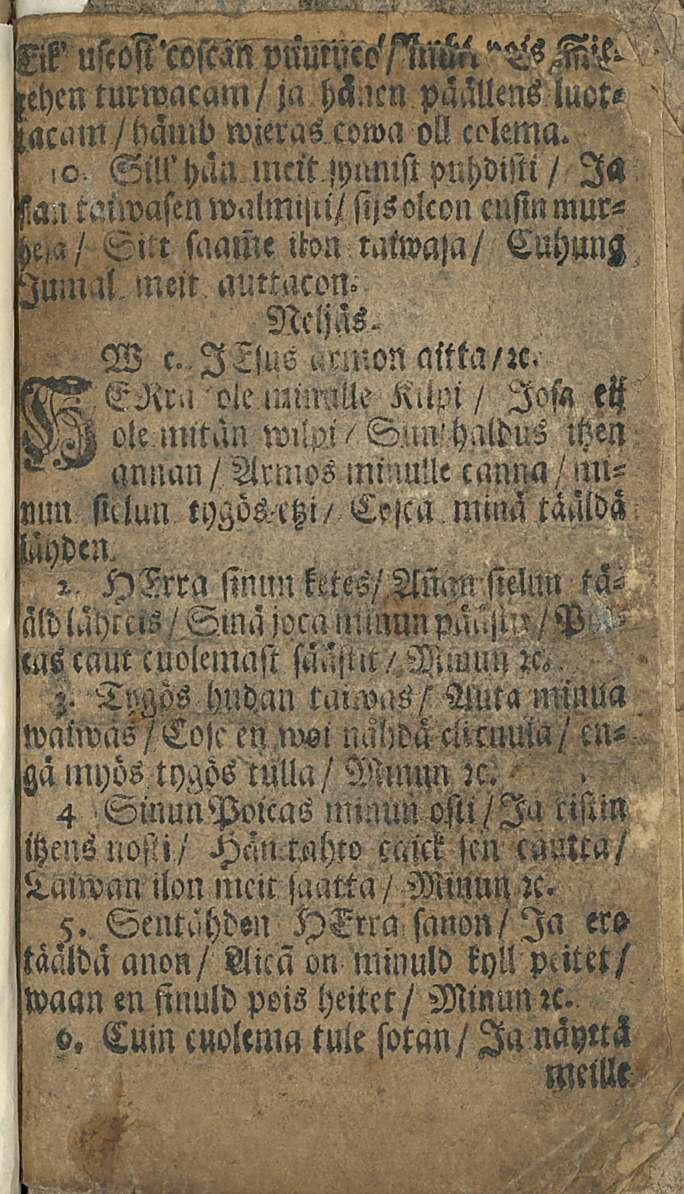 Tik' uscost' coscan puutuco / mutt pois
tehen turwacam / ja hänen päällens luot⸗
tacam / hämb wieras cowa oll colema.
10. Sill' hän meit synnist puhdisti / Ja
ilan taiwasen walmisti / sijs olcon ensin mur⸗
hesa / Sitt saam̃e ilon taiwasa / Cuhung
Jumal meit auttacon.
Neljäs.
W e. JEsus armon aitta / ꝛc.
HERra ole minulle Kilpi / Josa eij
ole mitän wilpi / Sun haldus itzen
annan / Armos minulle canna / mi⸗
nun sielun tygös etzi / Cosca minä tääldä
lähden.
2. HErra sinun ketes / An̄an sielun tä⸗
äld lähteis / Sinä joca minun päästit / Poi⸗
cas caut cuolemast säästit / Minun ꝛc.
3. Tygös hudan taiwas / Auta minua
waiwas / Cosc en woi nähdä elicnula / en⸗
gä myös tygös tulla / Minun ꝛc.
4 Sinun Poicas minun osti / Ja ristin
itzens nosti / Hän tahto caick sen cautta /
Taiwan ilon meit saatta / Minun ꝛc.
5. Sentähden HErra sanon / Ja ero
tääldä anon / Aicã on minuld kyll peitet /
waan en sinuld pois heitet / Minun ꝛc.
6. Cuin cuolema tule sotan / Ja näyttä
meille